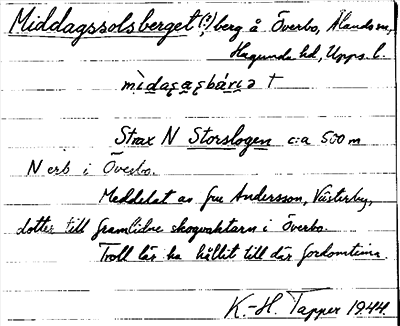 Middagssolsberget (!) berg å Överbo, Ålands sn,
Hagunda hd, Upps. l.
mìdagsbárjət
Strax N Storslogen c:a 500 m
N om i Överbo.
Meddelat av fru Andersson, Västerby,
dotter till framlidne skogvaktarn i Överbo.
Troll lär ha hållit till där fordomtima.
K.-H. Tapper 1944.